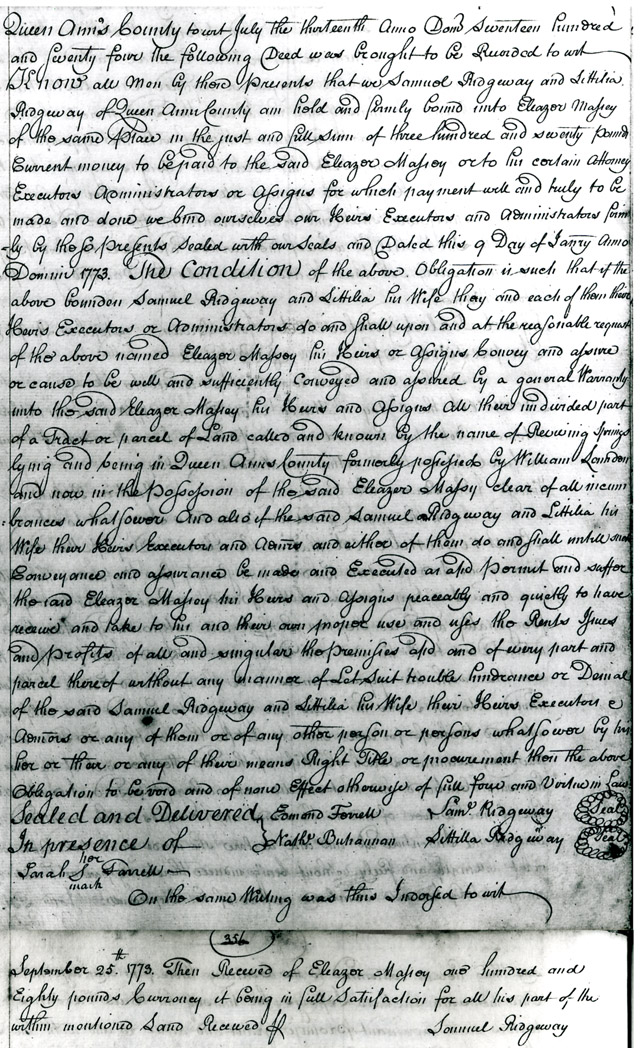 Queen Ann's County to wit July the thirteenth Anno Dom Seventeen hundred
and Seventy four the following Deed was brought to be Recorded to wit
Know all Men by these Presents that we Samuel Ridgeway and Littilia
Ridgeway of Queen Anns County am held and firmly bound unto Eleazer Massey
of the same Place in the just and full sum of three hundred and seventy pounds
Current money to be paid to the said Eleazer Massey or to his certain Attorney
Executors Administrators or Assigns for which payment well and truly to be
made and done we bind ourselves our Heirs Executors and Administrators firm
-ly by these Presents Sealed with our Seals and Dated this 9 Day of Janry Anno
Domini 1773. The Condition of the above Obligation is such that if the
above bounden Samuel Ridgeway and Littilia his Wife they and each of them their
Heirs Executors or Administrators do and shall upon and at the reasonable request
of the above named Eleazer Massey his Heirs or Assigns Convey and assure
or cause to be well and sufficiently Conveyed and assured by a general Warranty
unto the said Eleazer Massey his Heirs and Assigns all their undivided part
of a Tract or parcel of Land called and known by the name of Reviving Springs
lying and being in Queen Anns County formerly possessed by William
and now in the Possession of the said Eleazer Massey clear of all incum
=brances whatsoever And also if the said Samuel Ridgeway and Littilia his
Wife their Heirs Executors and Admrs and either of them do and shall untill such
Conveyance and assurance be made and Executed as afd Permit and suffer
the said Eleazer Massey his Heirs and Assigns peaceably and quietly to have
receive and take to his and their own proper use and uses the Rents Issues
and Profits of all and singular the Premisses afd and of every part and
parcel thereof without any manner of Let Suit trouble hindrance or Denial
of the said Samuel Ridgeway and Littilia his Wife their Heirs Executors &
Admors or any of them or of any other person or persons whatsoever by his
her or their or any of their means Right Title or procurement then the above
Obligation to be void and of none Effect otherwise of full force and Virtue in Law
Sealed and Delivered Edmond Ferrell Saml. Ridgeway Seal
In presence of Nathl. Buhannan Littilla Ridgeway Seal
her
Sarah S Farrell
mark
On the same Writing was thus Indorsed to wit
356
September 25th. 1773. Then Received of Eleazer Massey one hundred and
Eighty pounds Currency it being in full Satisfaction for all his part of the
within mentioned Land Received Samuel Ridgeway